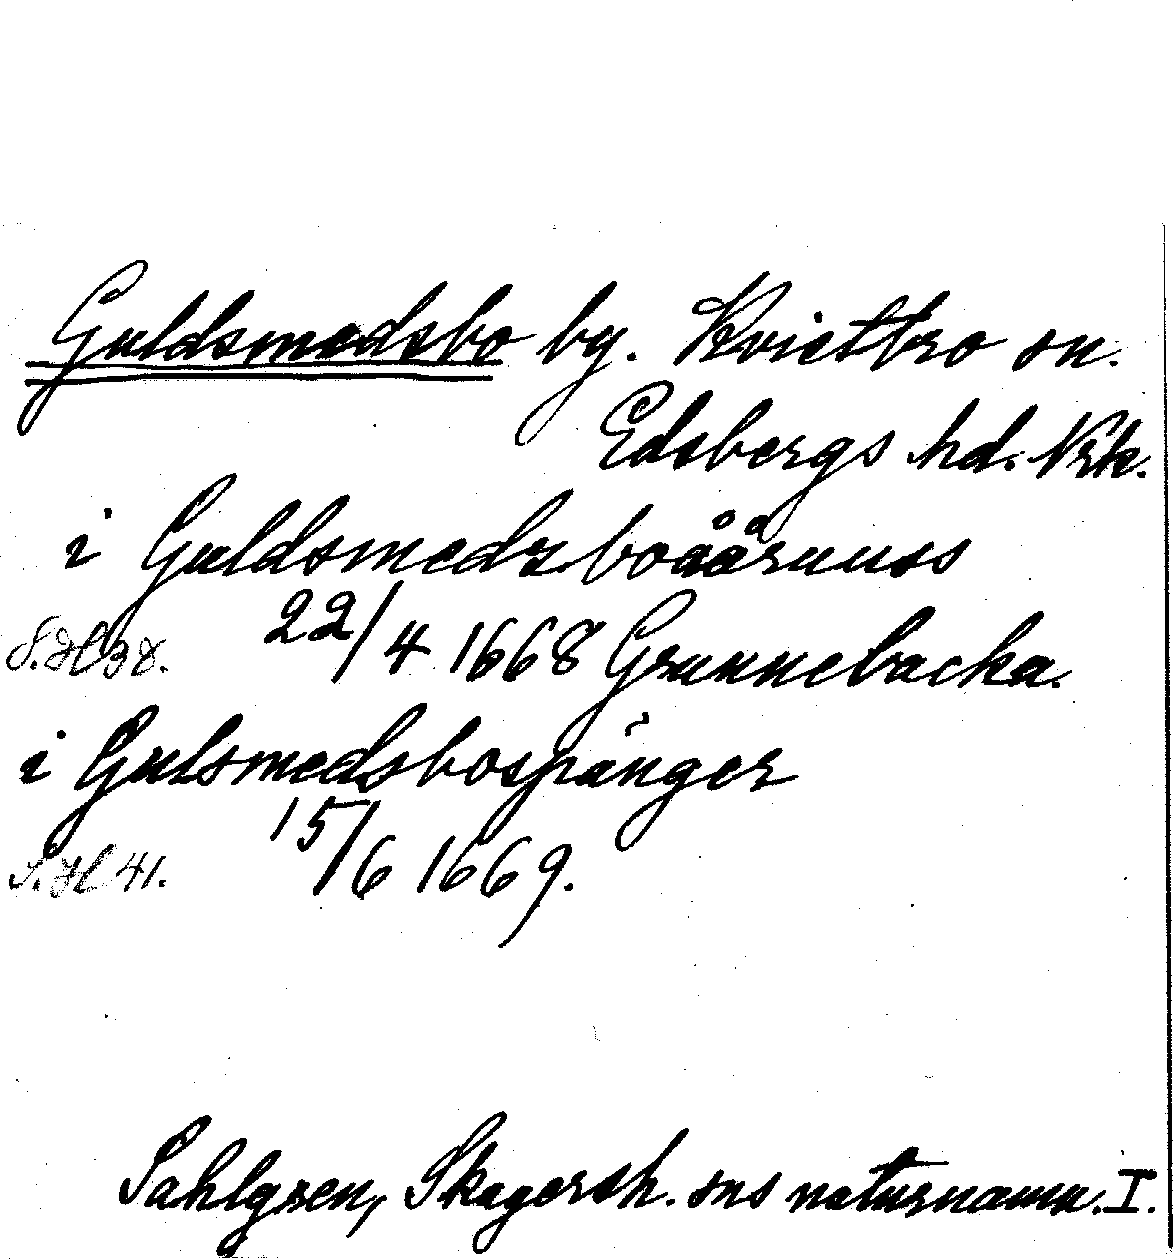 Guldsmedsbo by. Kvistbro sn.
Edsbergs hd. Nrk.
i Guldsmedzboåårunss
S. Hl 38. 22/4 1668 Grunnebacka.
i Gulsmedsbospånger
S. Hl 41. 15/6 1669.
Sahlgren, Skagersh. sns naturnamn. I.